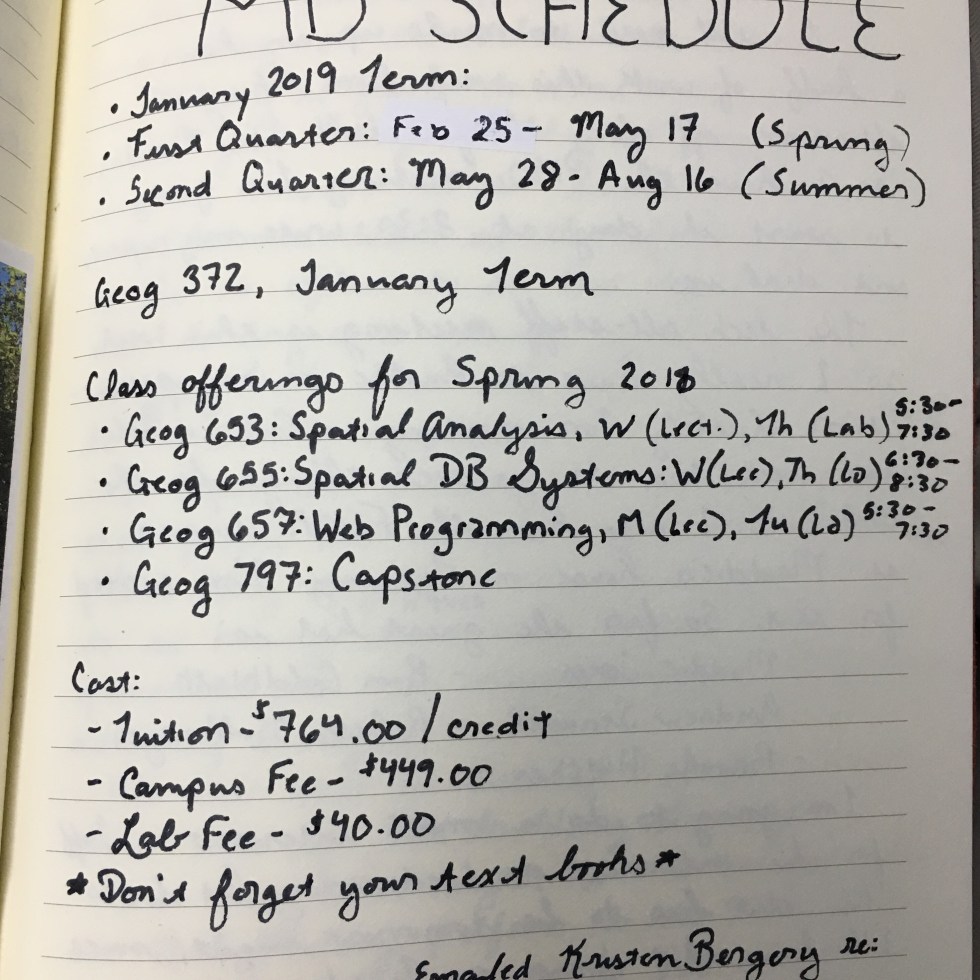 MD SCHEDULE
• January 2019 Term:
• First Quarter: Feb 25 - May 17 (Spring)
• Second Quarter: May 28 - Aug 16 (Summer)
Geog 372, January Term
Class offerings for Spring 2018
• Geog 653: Spatial Analysis, W (Lect.), Th (Lab) 5:30-7:30
• Geog 655: Spatial DB Systems: W (Lec), Th (La) 6:30-8:30
• Geog 657: Web Programming, M (Lec), Tu (La) 5:30-7:30
• Geog 797: Capstone
Cost:
- Tuition - $764.00 / credit
- Campus Fee - $449.00
- Lab Fee - $40.00
* Don't forget your text books *
Emailed Kristen Bergery re: